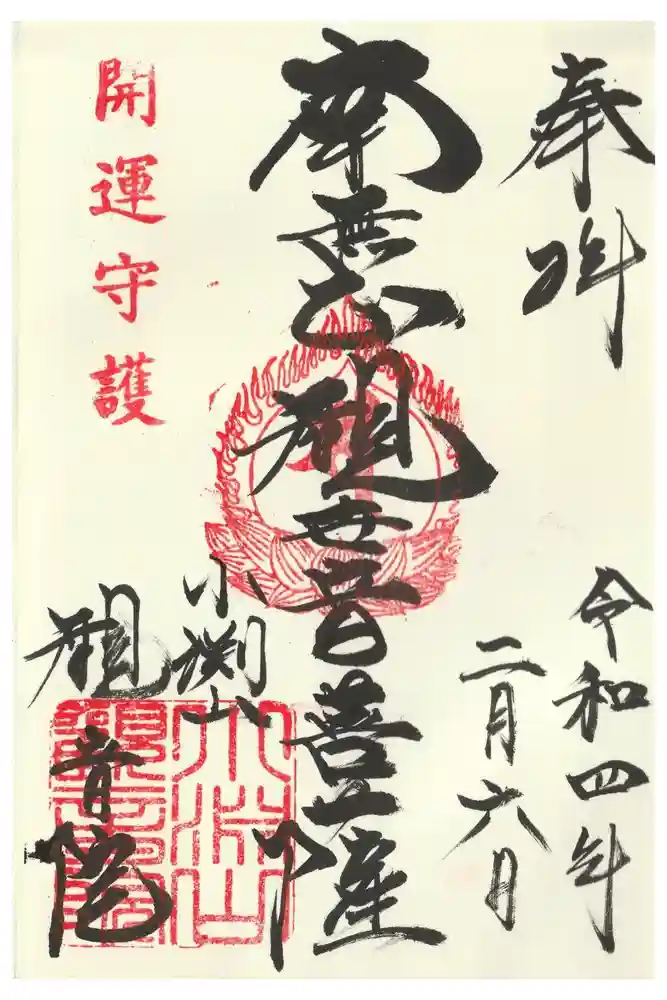 奉拝
令和四年
二月六日
南無正観世音菩薩
小渕山
観音院
開運守護
小淵山